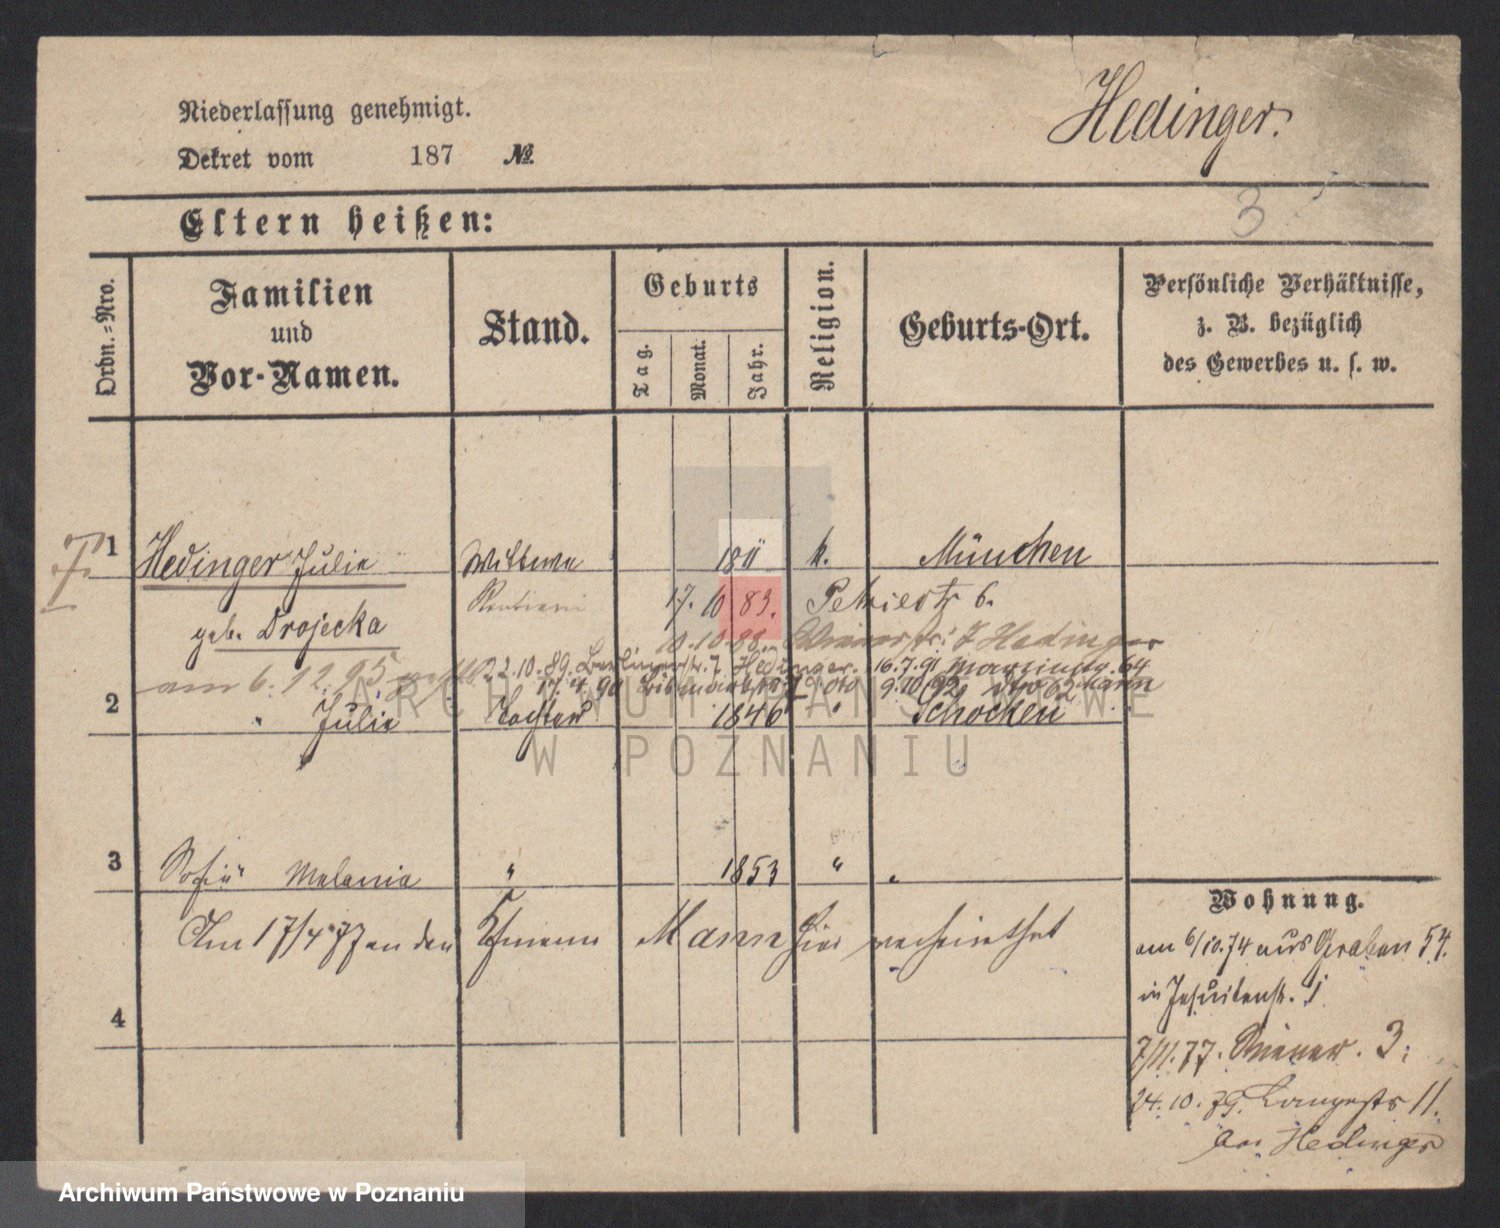 Niederlassung genehmigt.
Dekret vom 187 №
Hedinger.
3
Eltern heißen:
Ordn.=Nro.
Familien
und
Vor-Namen.
Stand.
Geburts
Tag.
Monat.
Jahr.
Religion.
Geburts-Ort.
Persönliche Verhältnisse,
z. B. bezüglich
des Gewerbes u. s. w.
1 Hedinger Julie Wittwe 1811 k. München
17. 10 83. Petriestr 6.
geb. Drojecka
10.10.88. Hedinger
am 6.12.95
22.10.89. Berlinerstr. 7 Hedinger. 16.7.91 Martinstr. 64
17.4.90 Bismarckstr 9.10.92 62 Mann
2 " Julie Tochter 1846 " Schocken
3 Sofie Melania " 1853 " "
Am 17/4 77 an den Kfmann Mann hier verheirathet
4
Wohnung.
am 6/10.74 aus Graben 54.
in Jesuitenstr. 1
7/11.77. Wiener. 3.
24.10.79. Langestr 11.
bei Hedinger
ARCHIWUM PAŃSTWOWE
W POZNANIU
Archiwum Państwowe w Poznaniu